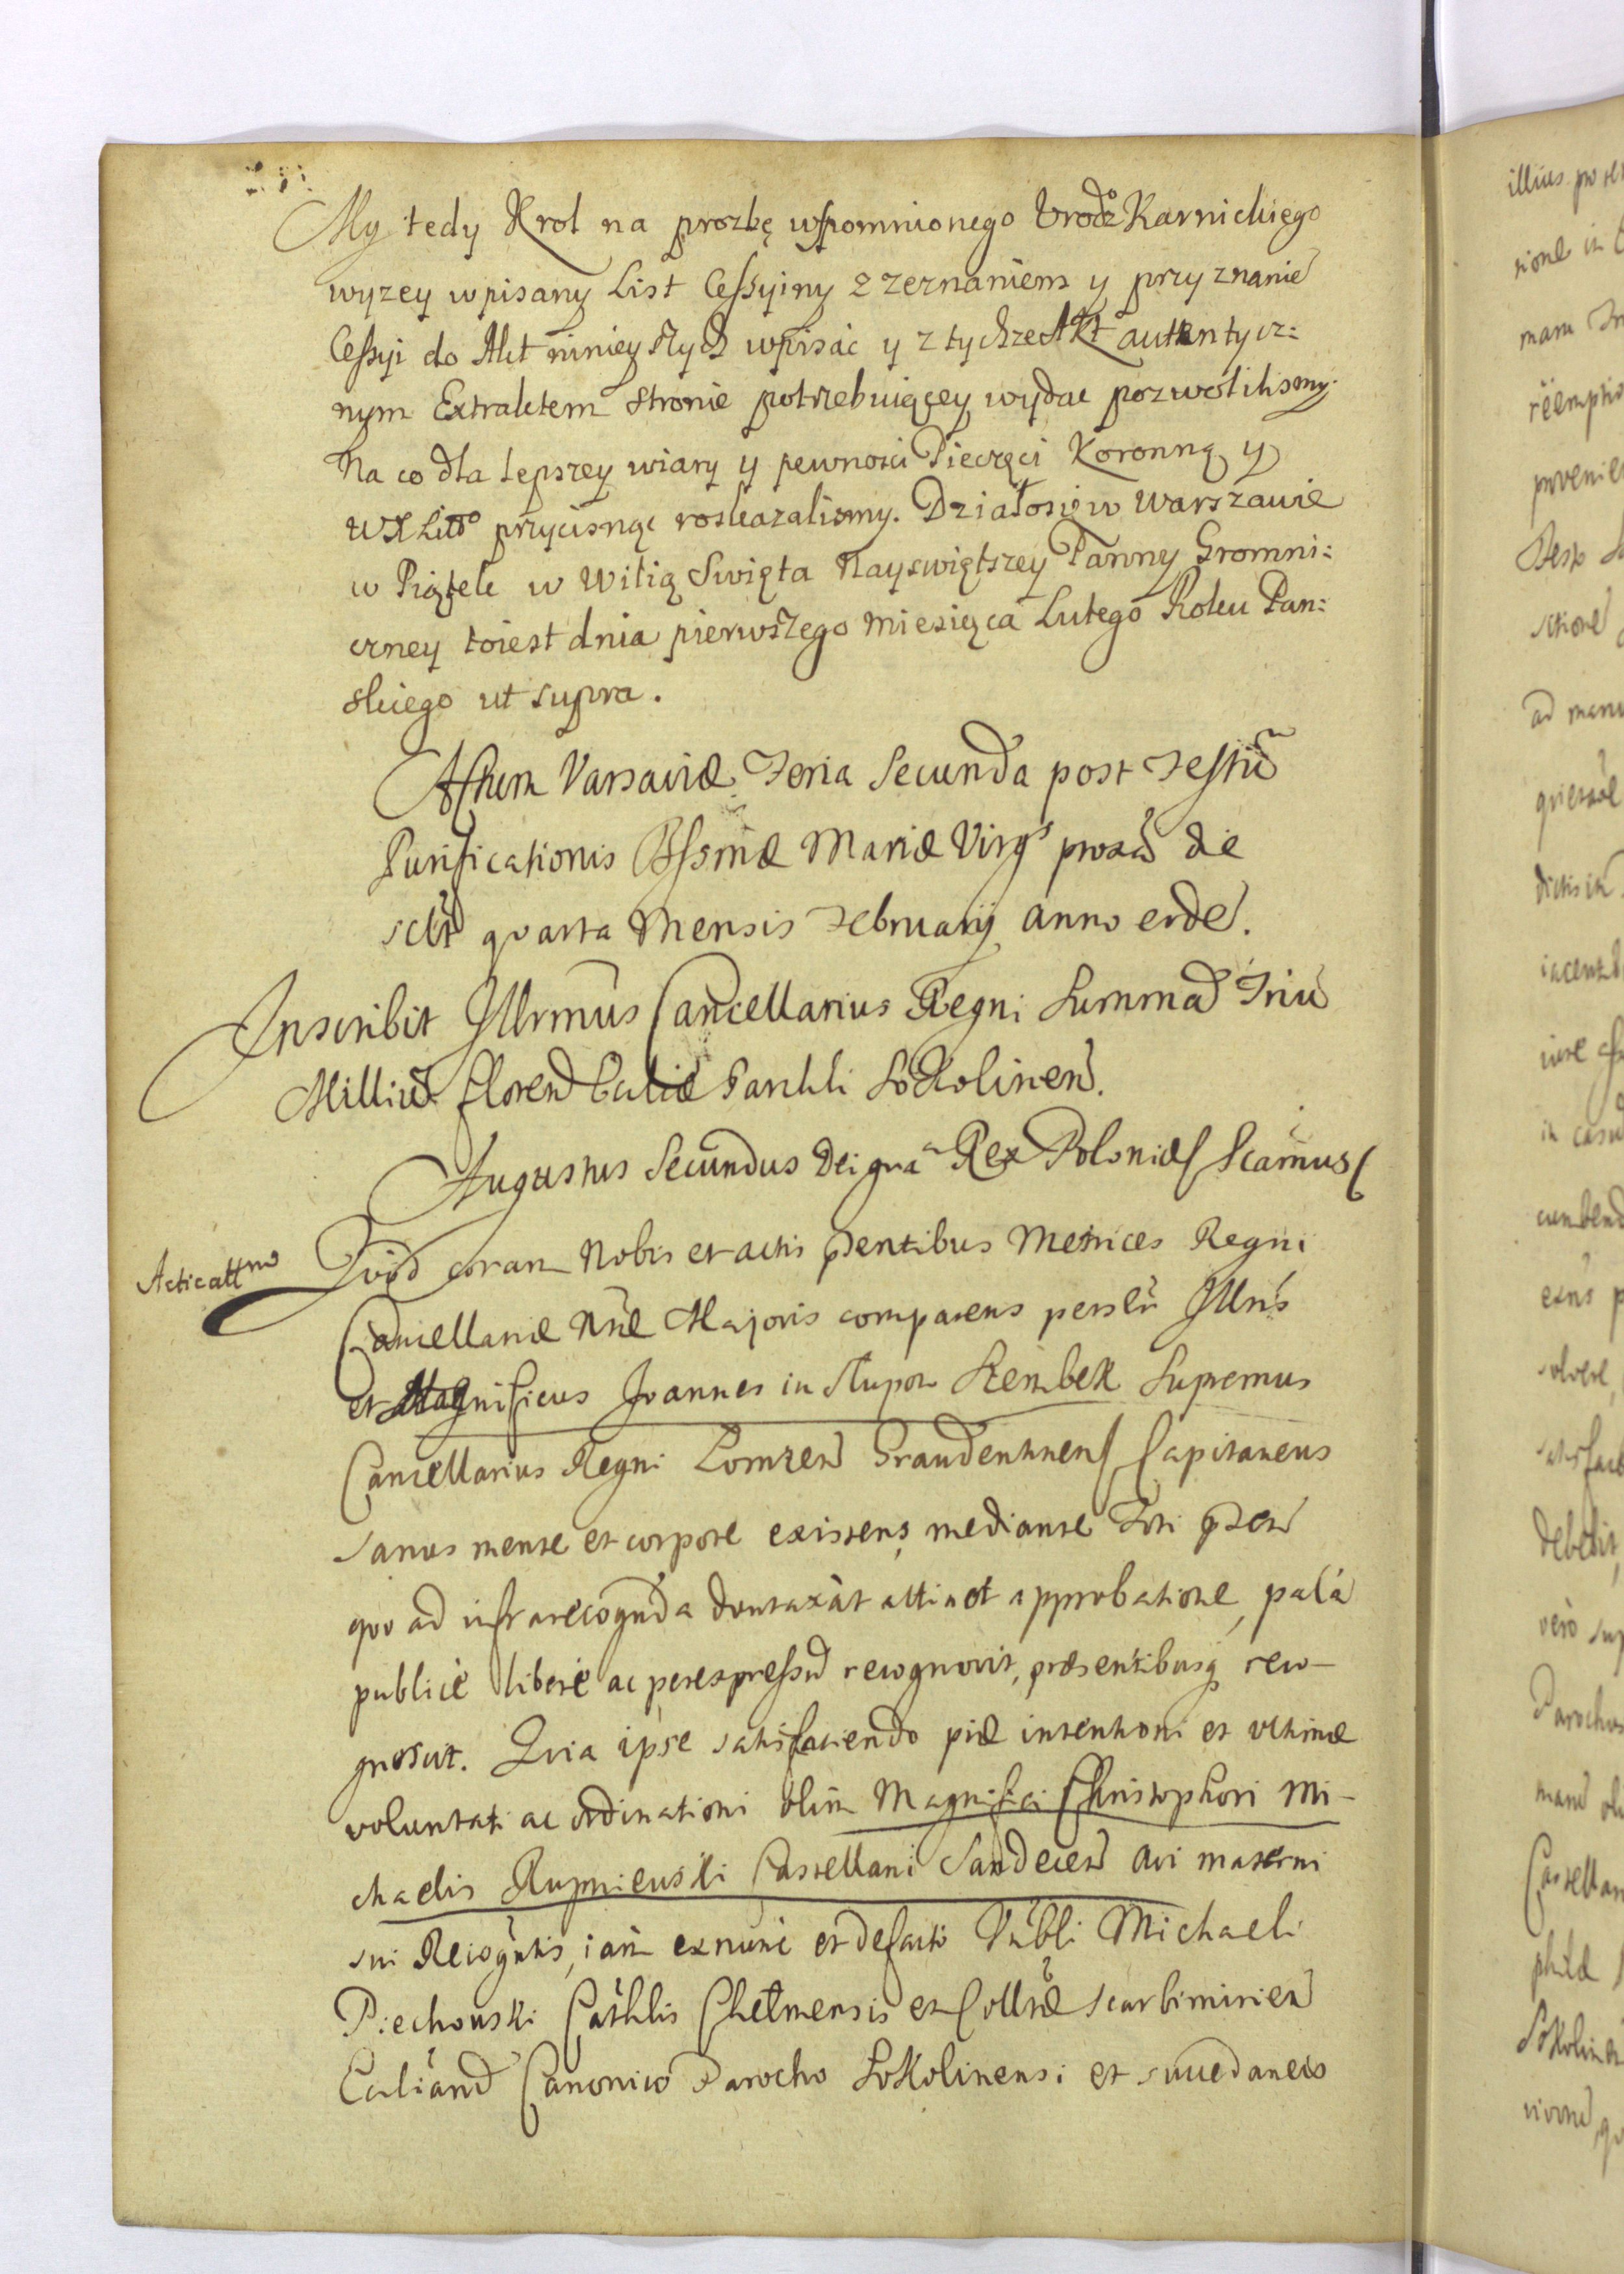 My tedy Krol na prozbę wspomnionego Urodz° Karnickiego
wyzey wpisany List Cessyiny z zeznaniem y przyznanie
Cessyi do Akt ninieyszych wpisać y z tychze Akt autentycz:
nym Extraktem stronie potrzebuiącey wydac pozwolilismy.
Na co dla lepszey wiary y pewnosci Pieczęci Koronną y
WX Litto przycisnąc roskazalismy. Działosię w Warszawie
w Piątek w Wilią Swięta Nayswiętszey Panny Gromni:
czney toiest dnia pierwszego Miesiąca Lutego Roku Pan:
skiego ut supra.
Actum Varsaviæ Feria Secunda post Festũ
Purificationis Bssmæ Mariæ Virgs proxa die
sclt quarta Mensis Februarij anno eode.
Inscribit Illrmus Cancellarius Regni Summa Triu
Milliu floren Ecliæ Parchli Sokolinen.
Augustus Secundus Dei gra Rex Poloniæ Scamus
Acticattno
Quod coram Nobis et actis pñtibus Metrices Regni
Cancellariæ Nræ Majoris comparens persłr Illris
et Magnificus Joannes in Słupow Szembek Supremus
Cancellarius Regni Lomzen Graudentinens Capitaneus
sanus mente et corpore existens, mediante Nri pñter
quo ad infrarecognda duntaxat attinet approbatione, pala
publicè liberè ac per expressu recognovit, præsentibusq reco-
gnoscit. Quia ipse satisfaciendo piæ intentioni et ultimæ
voluntati ac ordinationi olim Magnifici Christophori Mi-
chaelis Rupniewski Castellani Sandecen avi materni
sui Recogntis, iam exnunc et defacto Vnbli Michaeli
Piechowski Cathlis Chełmensis et Colltæ Scarbimirien
Ecliand Canonico Parocho Sokolinensi et succedaneis